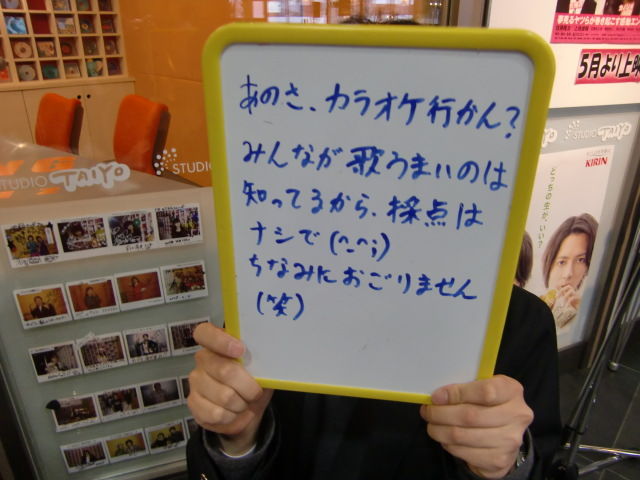 あのさ、カラオケ行かん?
みんなが歌うまいのは
知ってるから、採点は
ナシで(^_^;)
ちなみにおごりません
(笑)
STUDIO TAIYO
STUDIO
STUDIO TAIYO
5月より上映
KIRIN
どっちの生が、いい?